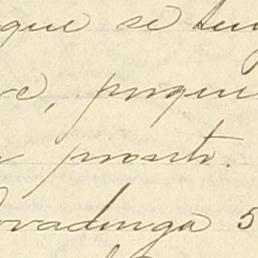 que se ten
, porque
pronto.
ovadonga 5